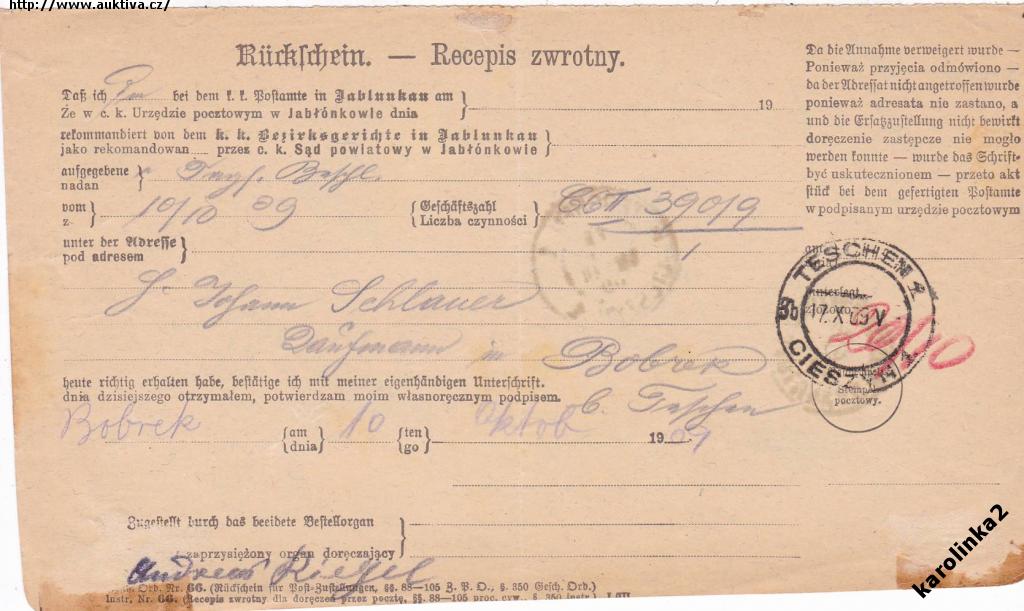 http://www.auktiva.cz/
Rückschein. — Recepis zwrotny.
Daß ich bei dem k. k. Postamte in Jablunkau am
Że w c. k. Urzędzie pocztowym w Jabłónkowie dnia
19
rekommandiert von dem k. k. Bezirksgerichte in Jablunkau
jako rekomandowan przez c. k. Sąd powiatowy w Jabłónkowie
aufgegebene
nadan
vom
z
10/10 09
Geschäftszahl
Liczba czynności
39019
1
unter der Adresse
pod adresem
Johann Schlauer
Kaufmann in Bobrek
heute richtig erhalten habe, bestätige ich mit meiner eigenhändigen Unterschrift.
dnia dzisiejszego otrzymałem, potwierdzam moim własnoręcznym podpisem.
b. Teschen
Bobrek
am
dnia
10
ten
go
Oktob
1909
Zugestellt durch das beeidete Bestellorgan
zaprzysiężony organ doręczający
Andreas Kiegel
Ord. Nr. 66. (Rückschein für Post-Zustellungen, §§. 88—105 Z. P. O., §. 350 Gesch. Ord.)
Instr. Nr. 66. (Recepis zwrotny dla doręczeń przez pocztę, §§. 88—105 proc. cyw., §. 350 instr.)
Da die Annahme verweigert wurde —
Ponieważ przyjęcia odmówiono —
da der Adressat nicht angetroffen wurde
ponieważ adresata nie zastano, a
und die Ersatzzustellung nicht bewirkt
doręczenie zastępcze nie mogło
werden konnte — wurde das Schrift-
być uskutecznionem — przeto akt
stück bei dem gefertigten Postamte
w podpisanym urzędzie pocztowym
am
hinterlegt.
złożono.
TESCHEN 1
17.X 09 V
CIESZYN 1
pocztowy.
karolinka2